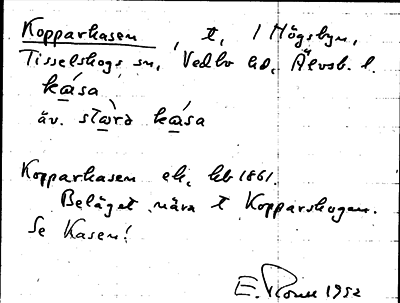 Kopparkasen, t, i Högsbyn,
Tisselskogs sn, Vedbo hd, Älvsb. l.
kàsa
äv. stàrə kàsa
Kopparkasen ek, hb 1861.
Beläget nära t Kopparshagen.
Se Kasen!
E. 1952